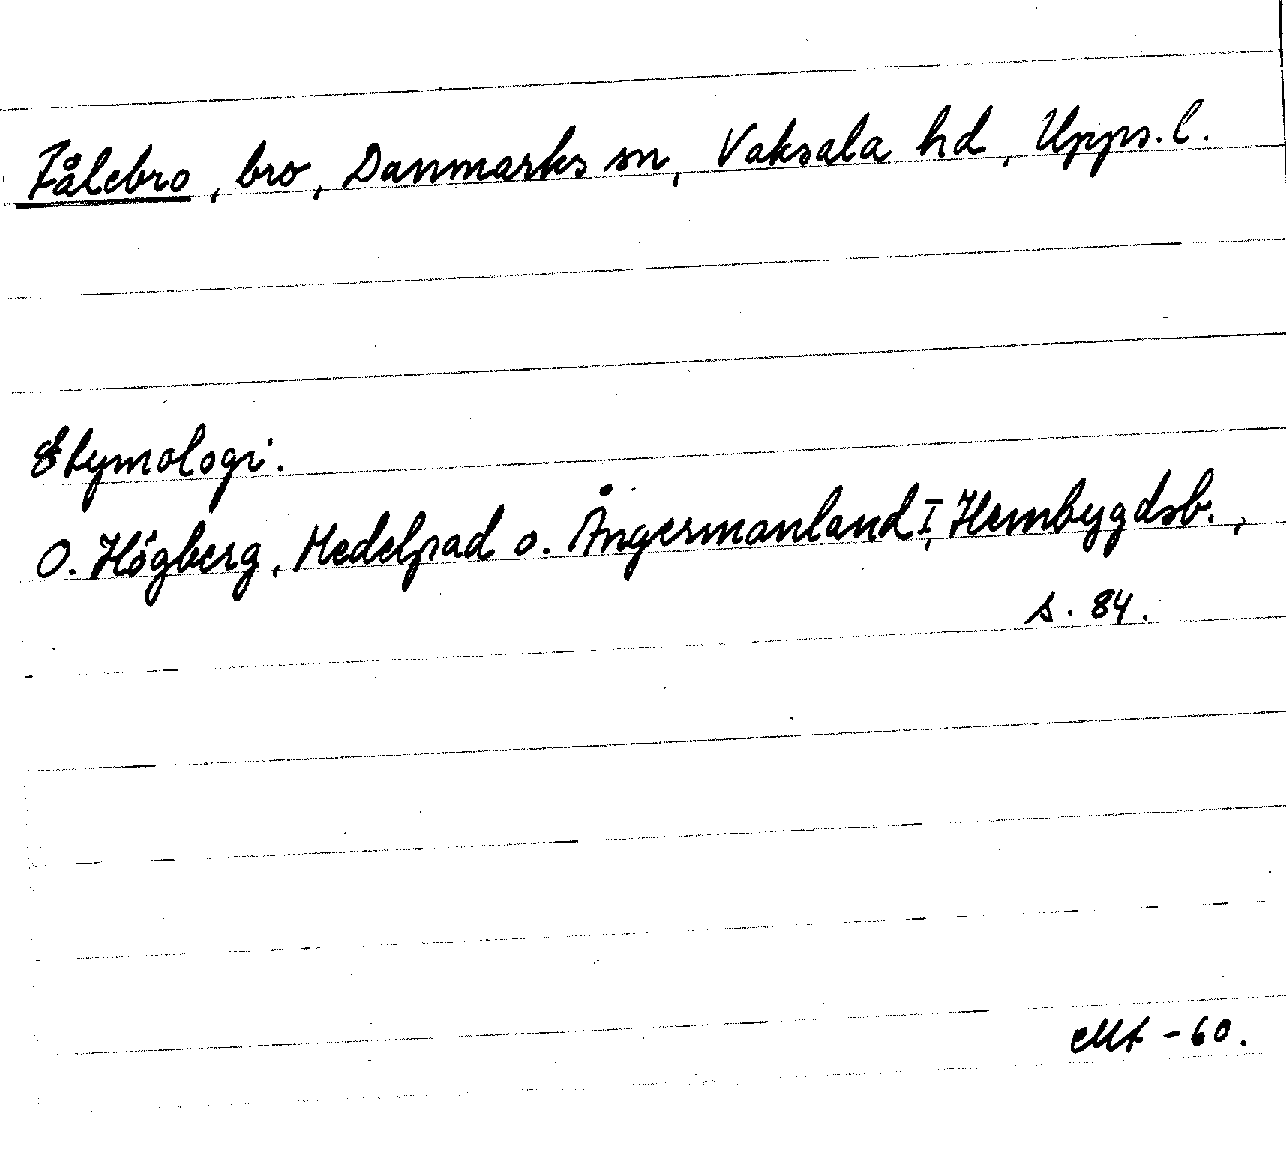 Fålebro, bro, Danmarks sn, Vaksala hd, Upps. l.
Etymologi.
O. Högberg, Medelpad o. Ångermanland I, Hembygdsb.,
s. 84.
-60.